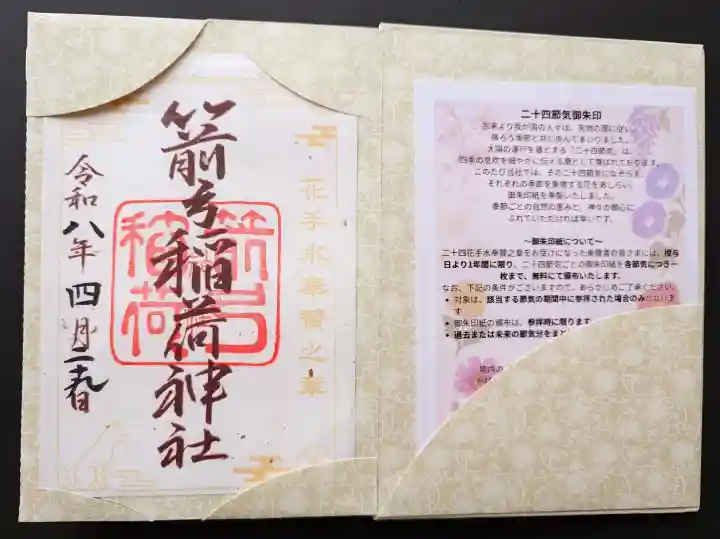 箭弓稲荷神社
令和八年四月二十九日
花手水奉賛之章
箭弓
稲荷
二十四節気御朱印
古来より我が国の人々は、天地の理に従い、
移ろう季節と共に歩んでまいりました。
太陽の運行を基とする「二十四節気」は、
四季の息吹を細やかに伝える暦として尊ばれております。
このたび当社では、その二十四節気になぞらえ、
それぞれの季節を象徴する花をあしらい、
御朱印紙を奉製いたしました。
季節ごとの自然の恵みと、神々の御心に
ふれていただければ幸いです。
～御朱印紙について～
二十四花手水奉賛之章をお受けになった崇敬者の皆さまには、授与
日より1年間に限り、二十四節気ごとの御朱印紙を各節気につき一
枚まで、無料にて頒布いたします。
なお、下記の条件がございますので、あらかじめご了承ください。
• 対象は、該当する節気の期間中に参拝された場合のみとなりま
す
• 御朱印紙の頒布は、参拝時に限ります
• 過去または未来の節気分をまと
境内の